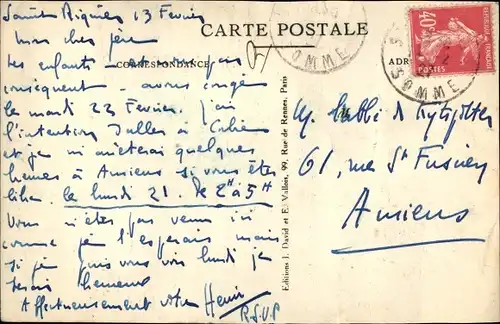 CARTE POSTALE
CORRESPONDANCE
Saint Riquier 13 Fevrier
Mon cher père
Les enfants - et moi par
conséquent - avons congé
le mardi 22 Fevrier. J'ai
l'intention d'aller à
et je m'arrêterai quelques
heures à Amiens si vous êtes
libre. le lundi 21. de 2H à 5H
Vous n'êtes pas venu ici
comme je l'esperais mais
si je puis vous voir lundi je
serais
Affectueusement votre Henri
R.S.V.P
Editions J. David et E. Vallois, 99, Rue de Rennes, Paris
ADR
REPUBLIQUE FRANÇAISE
40c
POSTES
SOMME
OMME
M. l'abbé de
61, rue St Fuscien
Amiens